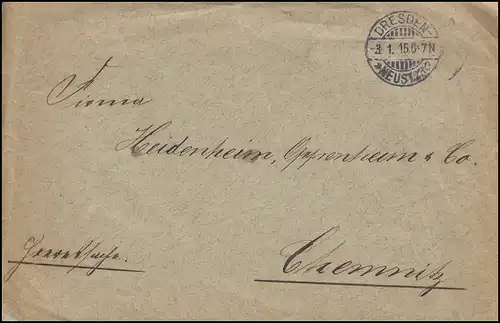 DRESDEN-
3. 1. 15. 6-7N
*NEUST. 23 c
Firma
Heidenheim, Oppenheim & Co.
Heeressache.
Chemnitz